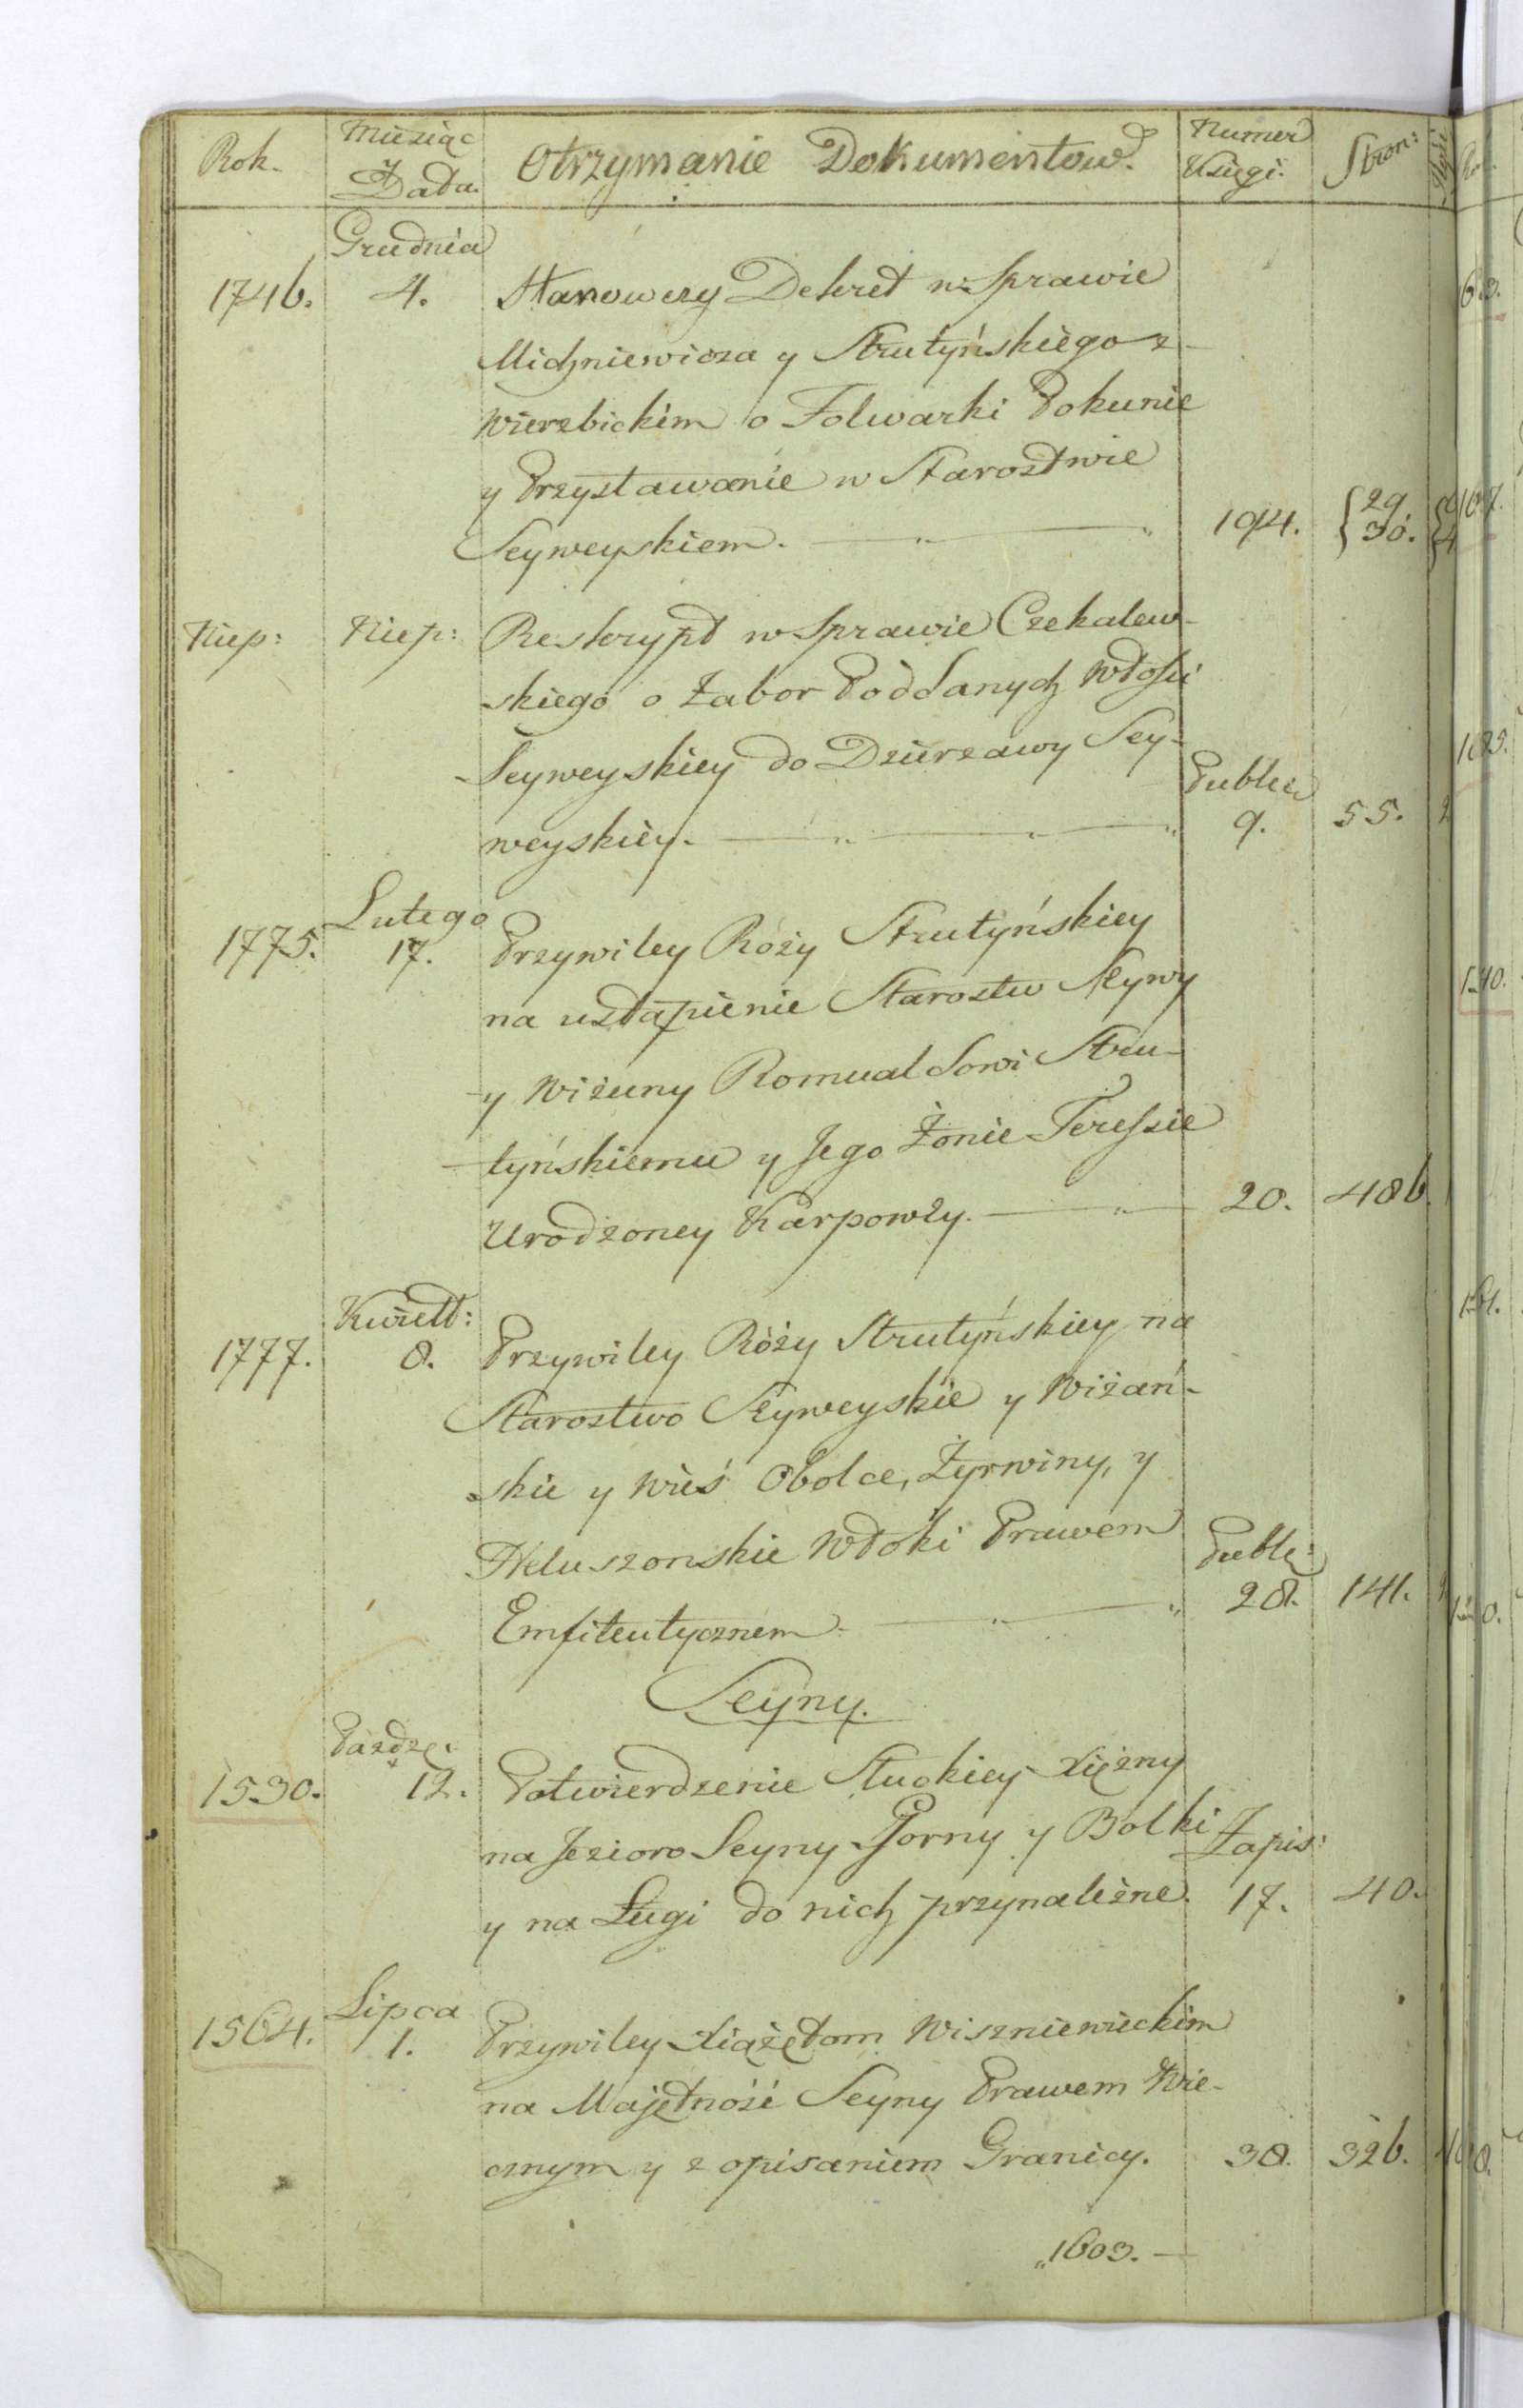 Rok. Miesiąc Data. Otrzymanie Dokumentow. Numer Księgi. Stron:
Grudnia
1746. 4. Stanowczy Dekret w Sprawie
Michniewicza y Strutyńskiego z
Wierzbickim o Folwarki Pokunie
y Przystawanie w Starostwie
Seyweyskiem. 194. {29. 30.
Niep: Niep: Reskrypt w Sprawie Czekalew-
skiego o Zabor Poddanych Włości
Seyweyskiey do Dzierzawy Sey-
weyskiey. Publicz 9. 55.
Lutego
1775. 17. Przywiley Róży Strutyńskiey
na ustąpienie Starostw Seywy
y Wiżuny Romualdowi Stru-
tyńskiemu y Jego Żonie Teressie
Urodzoney Karpowży. 20. 486.
Kwiet:
1777. 8. Przywiley Róży Strutyńskiey na
Starostwo Seyweyskie y Wiżań-
skie y Wieś Obolce, Żyrwiny, y
Heluszonskie Włoki Prawem
Emfiteutycznem. Public: 28. 141.
Seyny.
Paźdz:
1530. 12. Potwierdzenie Słuckiey Xiężny
na Jezioro Seyny Gorny y Bolki Zapis:
y na Ługi do nich przynależne. 17. 40.
Lipca
1564. 1. Przywiley Xiążętom Wiszniewieckim
na Majętność Seyny Prawem Wie-
cznym y z opisaniem Granicy. 38. 326.
"1603.